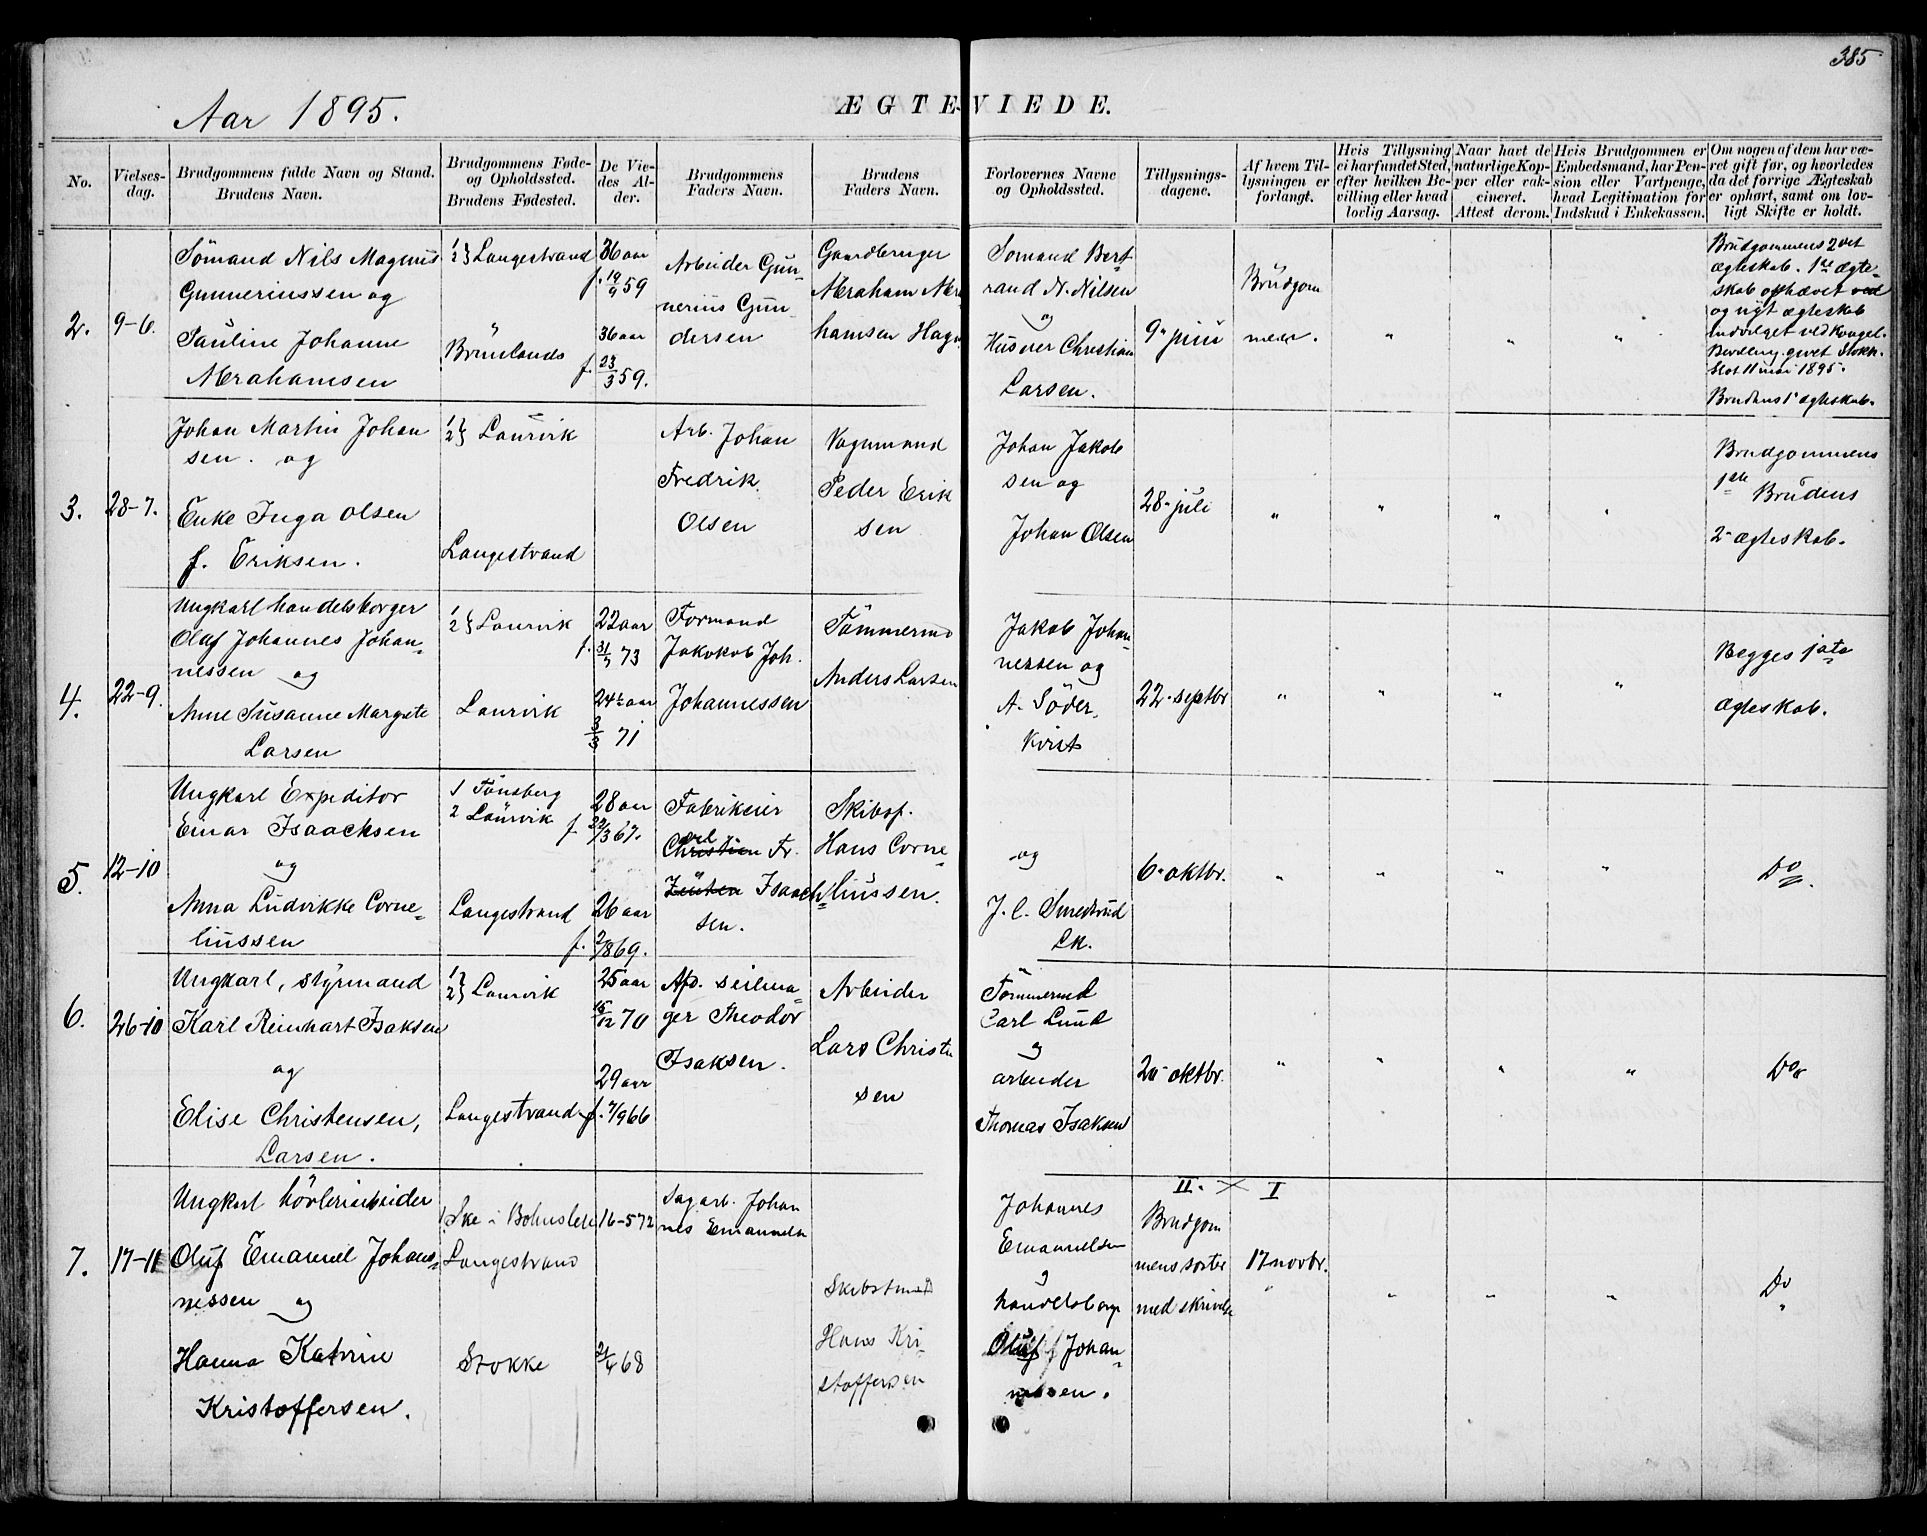 385
Aar 1895.
ÆGTEVIEDE.
No.
Vielses-
dag.
Brudgommens fulde Navn og Stand.
Brudens Navn.
Brudgommens Føde-
og Opholdssted.
Brudens Fødested.
De Vie-
des Al-
der.
Brudgommens
Faders Navn.
Brudens
Faders Navn.
Forlovernes Navne
og Opholdssted.
Tillysnings-
dagene.
Af hvem Til-
lysningen er
forlangt.
Hvis Tillysning
ei har fundet Sted,
efter hvilken Be-
villing eller hvad
lovlig Aarsag.
Naar havt de
naturlige Kop-
per eller vak-
cineret.
Attest derom.
Hvis Brudgommen er
Embedsmand, har Pen-
sion eller Vartpenge,
hvad Legitimation for
Indskud i Enkekassen.
Om nogen af dem har væ-
ret gift før, og hvorledes
da det forrige Ægteskab
er ophørt, samt om lov-
ligt Skifte er holdt.
2.
9-6.
Sømand Nils Magnus
Gunneriussen og
Pauline Johanne
Abrahamsen
1/2} Langestrand
"
Brunlands
36 aar
f. 19/9 59
36 aar
f. 23/3 59.
Arbeider Gun-
nerius Gun
dersen
Gaardbruger
Abraham Abra
hamsen Hagn
Sømand Bert
rand N. Nilsen
og
Huseier Christian
Larsen.
9" juni
Brudgom
men.
"
"
"
Brudgommens 2det
ægteskab. 1ste ægte-
skab ophævet ved
og nyt ægteskab
indvilget ved Kongel.
Bevilling givet Stokh.
Slot 11 mai 1895.
Brudens 1" ægteskab.
3.
28-7.
Johan Martin Johan
sen. og
Enke Inga Olsen
f. Eriksen.
1/2} Laurvik
Langestrand
Arb. Johan
Fredrik
Olsen
Vognmand
Peder Erik
sen
Johan Jakob
sen og
Johan Olsen
28" juli
"
"
"
"
Brudgommens
1ste Brudens
2" ægteskab.
4.
22-9.
Ungkarl handelsborger
Olaf Johannes Johan-
nessen og
Anne Susanne Margrete
Larsen
1/2} Laurvik
Laurvik
22 aar
f. 31/7 73
24½ aar
3/3 71
Formand
Jakokob Joh.
Johannessen
Tømmermd
Anders Larsen
Jakob Johan-
nessen og
A. Söder
kvist
22" septbr
"
"
"
"
Begges 1ste
ægteskab.
5.
12-10
Ungkarl Expeditør
Einar Isaacksen
og
Anna Ludvikke Corne-
liussen
1 Tønsberg
2 Laurvik
Langestrand
28 aar
f. 22/3 67.
26 aar
f. 2/8 69.
Fabrikeier
Christian Fr.
Isaach-
sen.
Skibsf.
Hans Corne-
liussen.
og
J. C. Smedsrud
Lk.
6" oktbr.
"
"
"
"
Do
6.
26-10
Ungkarl, styrmand
Karl Reinhart Isaksen
og
Elise Christensen,
Larsen.
1/2} Laurvik
Langestrand
25 aar
15/12 70
29 aar
f. 7/9 66
Afd. seilma-
ger Theodor
Isaksen.
Arbeider
Lars Christen
sen
Tømmermd
Carl Lund
og
arbeider
Thomas Isaksen
20" oktbr.
"
"
"
"
Do
7.
17-11
Ungkarl høvleriarbeider
Oluf Emanuel Johan-
nessen og
Hanna Katrine
Kristoffersen.
1. Ske i Bohuslen
Langestrand
Stokke
16-5 72
21/4 68
Sagarb. Johan
nes Emanuels
Skibstmmd
Hans Kri-
stoffersen
Johannes
Emanuelsen
og
handelsborger
Oluf J Johan-
nessen.
II. × I
Brudgom
mens søster
med skrivelse
17 novbr.
"
"
"
"
Do
"